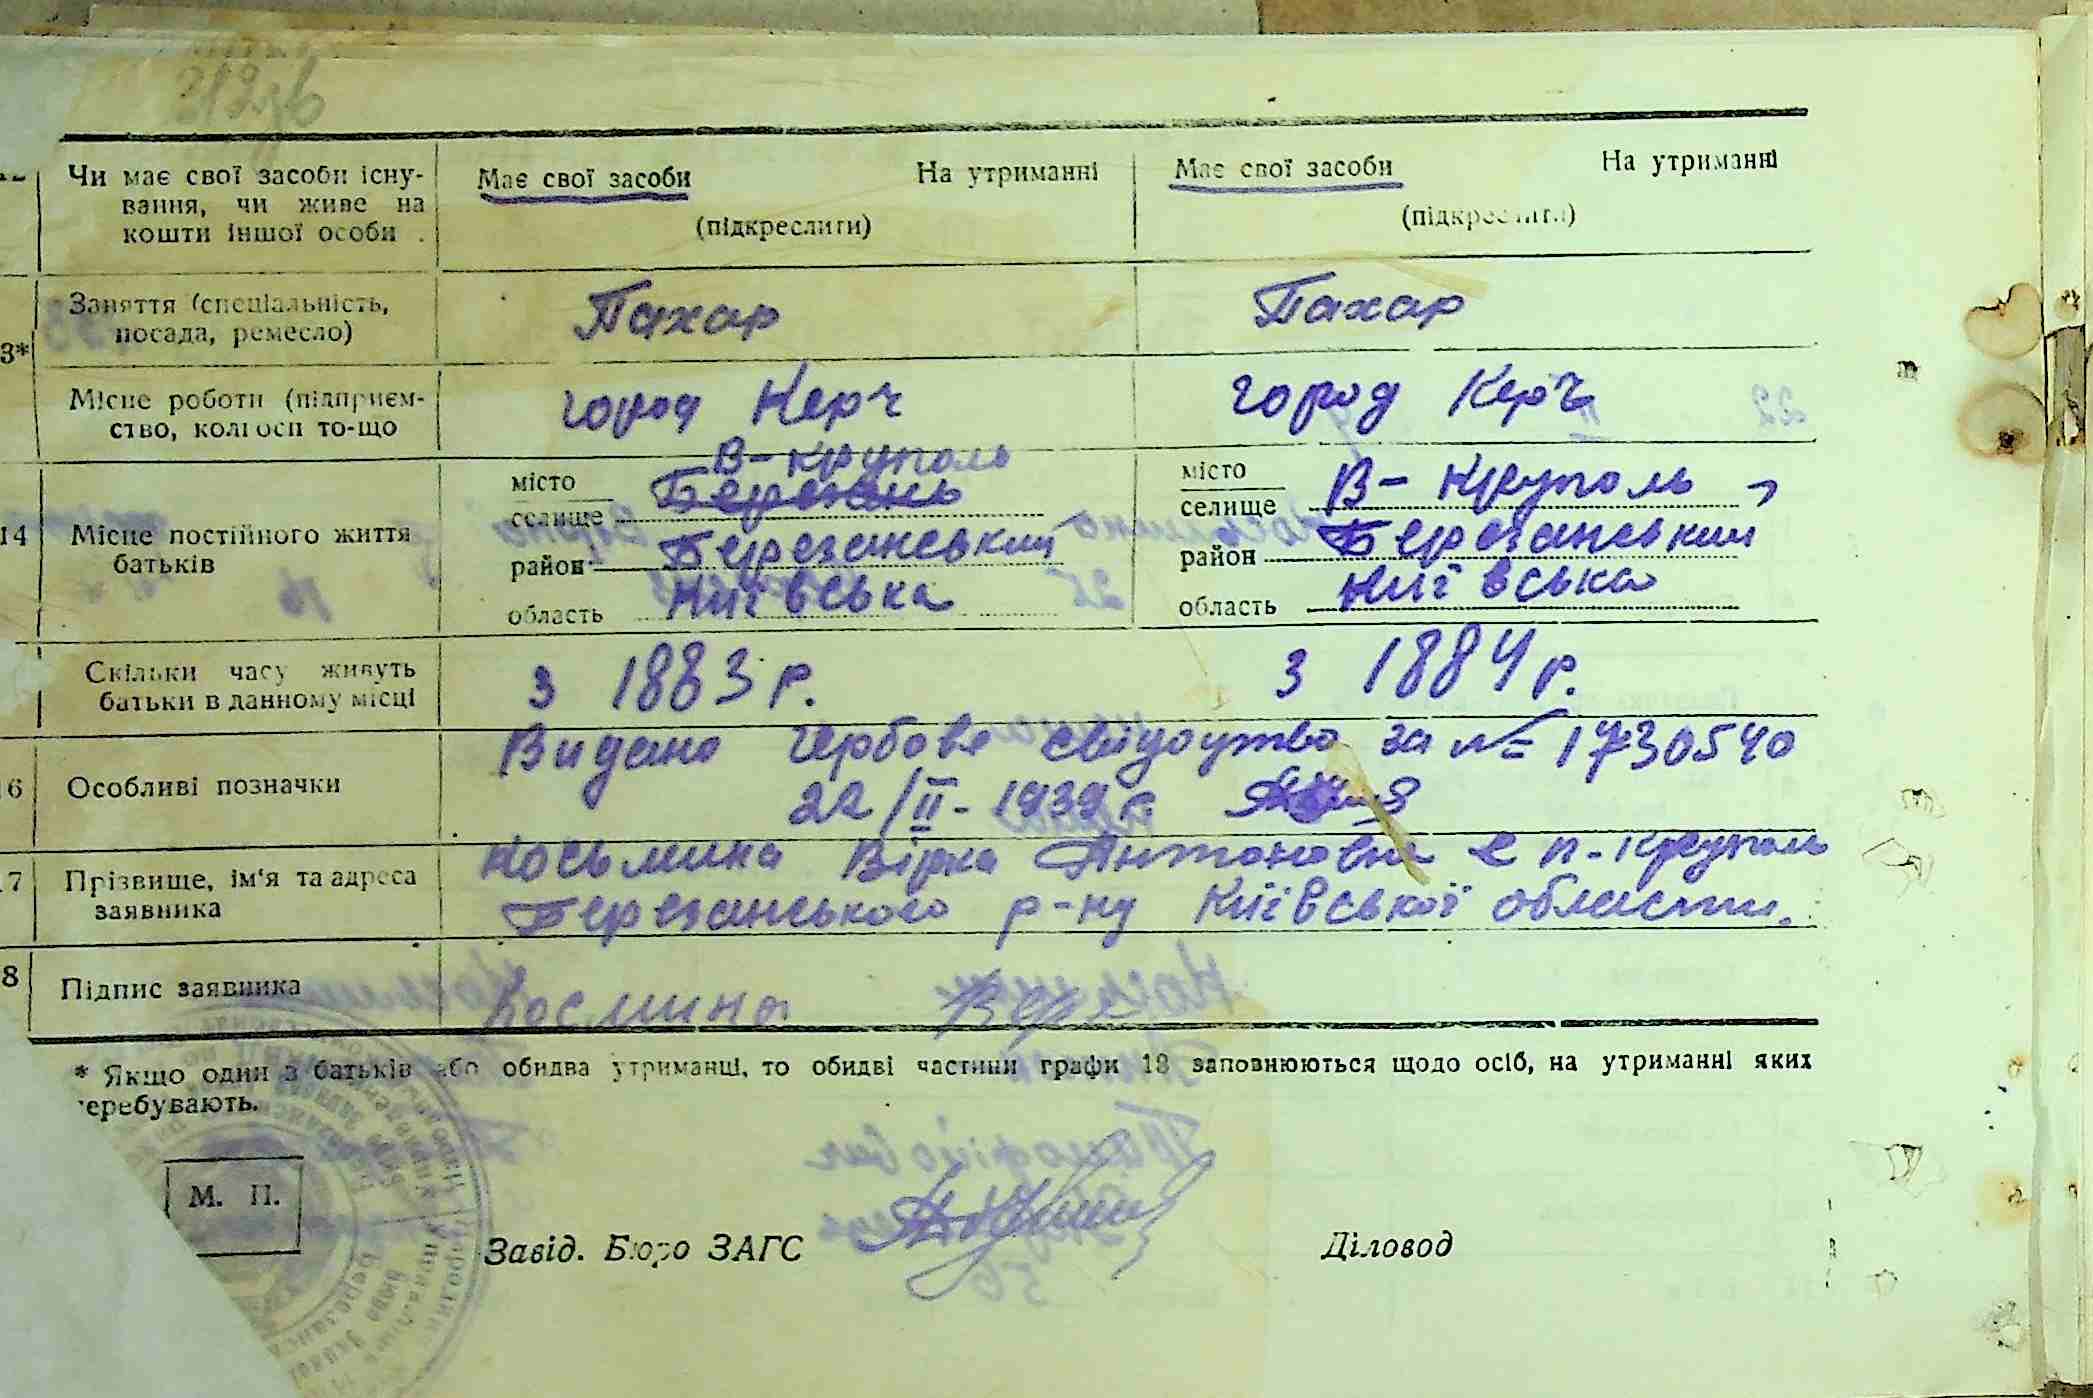 Чи має свої засоби існу-
вання, чи живе на
кошти іншої особи .
Має свої засоби На утриманні
(підкреслити)
Має свої засоби На утриманні
(підкреслити)
3*
Заняття (спеціальність,
посада, ремесло)
Пахар
Пахар
Місце роботи (підприєм-
ство, колгосп то-що
город Керч
город Керч
14
Місце постійного життя
батьків
В-Круполь
місто
селище Березань
район Березаневкий
область Київська
місто
селище В-Круполь,
район Березаневкий
область Київська
Скільки часу живуть
батьки в данному місці
з 1883 р.
з 1884 р.
6
Особливі позначки
Видано гербове свідоцтво за № 1730540
22/II-1939 г.
7
Прізвище, ім'я та адреса
заявника
Косьмина Вірка Антоновна с п-Круполь
Березанського р-ну Київської области.
8
Підпис заявника
Космина Вера
* Якщо один з батьків або обидва утриманці, то обидві частини графи 13 заповнюються щодо осіб, на утриманні яких
перебувають.
М. П.
Завід. Бюро ЗАГС
Діловод